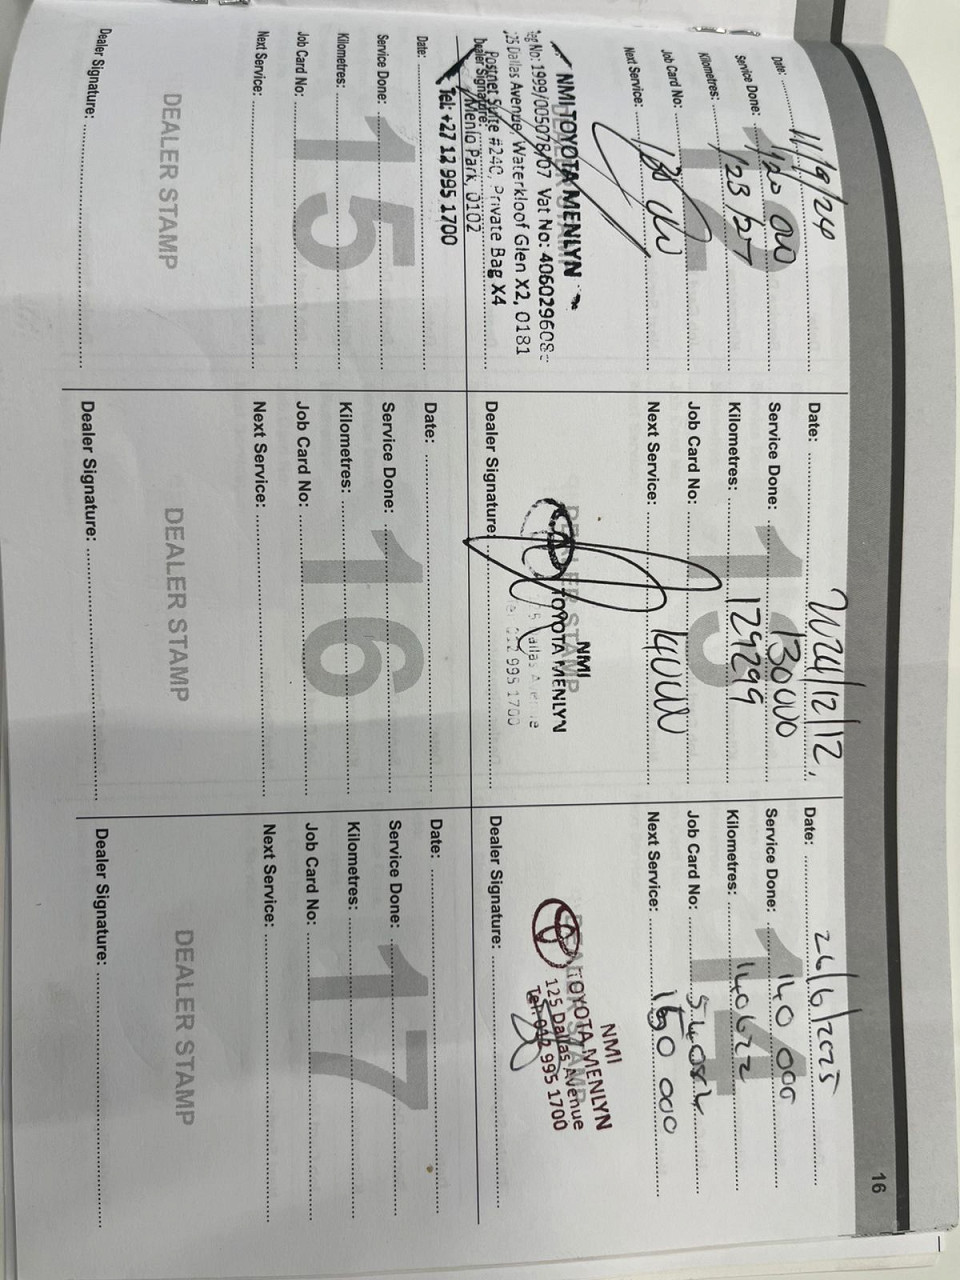 16
12
Date: 11/9/24
Service Done: 120 000
Kilometres: 123127
Job Card No:
Next Service: 130 000
DEALER STAMP
NMI TOYOTA MENLYN
Reg No: 1999/005078/07 Vat No: 406029608
125 Dallas Avenue, Waterkloof Glen X2, 0181
Postnet Suite #240, Private Bag X4
Menlo Park, 0102
Tel: +27 12 995 1700
Dealer Signature:
13
Date: 2024/12/12.
Service Done: 130000
Kilometres: 129299
Job Card No:
Next Service: 140000
DEALER STAMP
NMI
TOYOTA MENLYN
125 Dallas Avenue
Tel: 012 995 1700
Dealer Signature:
14
Date: 26/6/2025
Service Done: 140 000
Kilometres: 140622
Job Card No: 54082
Next Service: 150 000
DEALER STAMP
NMI
TOYOTA MENLYN
125 Dallas Avenue
Tel: 012 995 1700
Dealer Signature:
15
Date:
Service Done:
Kilometres:
Job Card No:
Next Service:
DEALER STAMP
Dealer Signature:
16
Date:
Service Done:
Kilometres:
Job Card No:
Next Service:
DEALER STAMP
Dealer Signature:
17
Date:
Service Done:
Kilometres:
Job Card No:
Next Service:
DEALER STAMP
Dealer Signature: